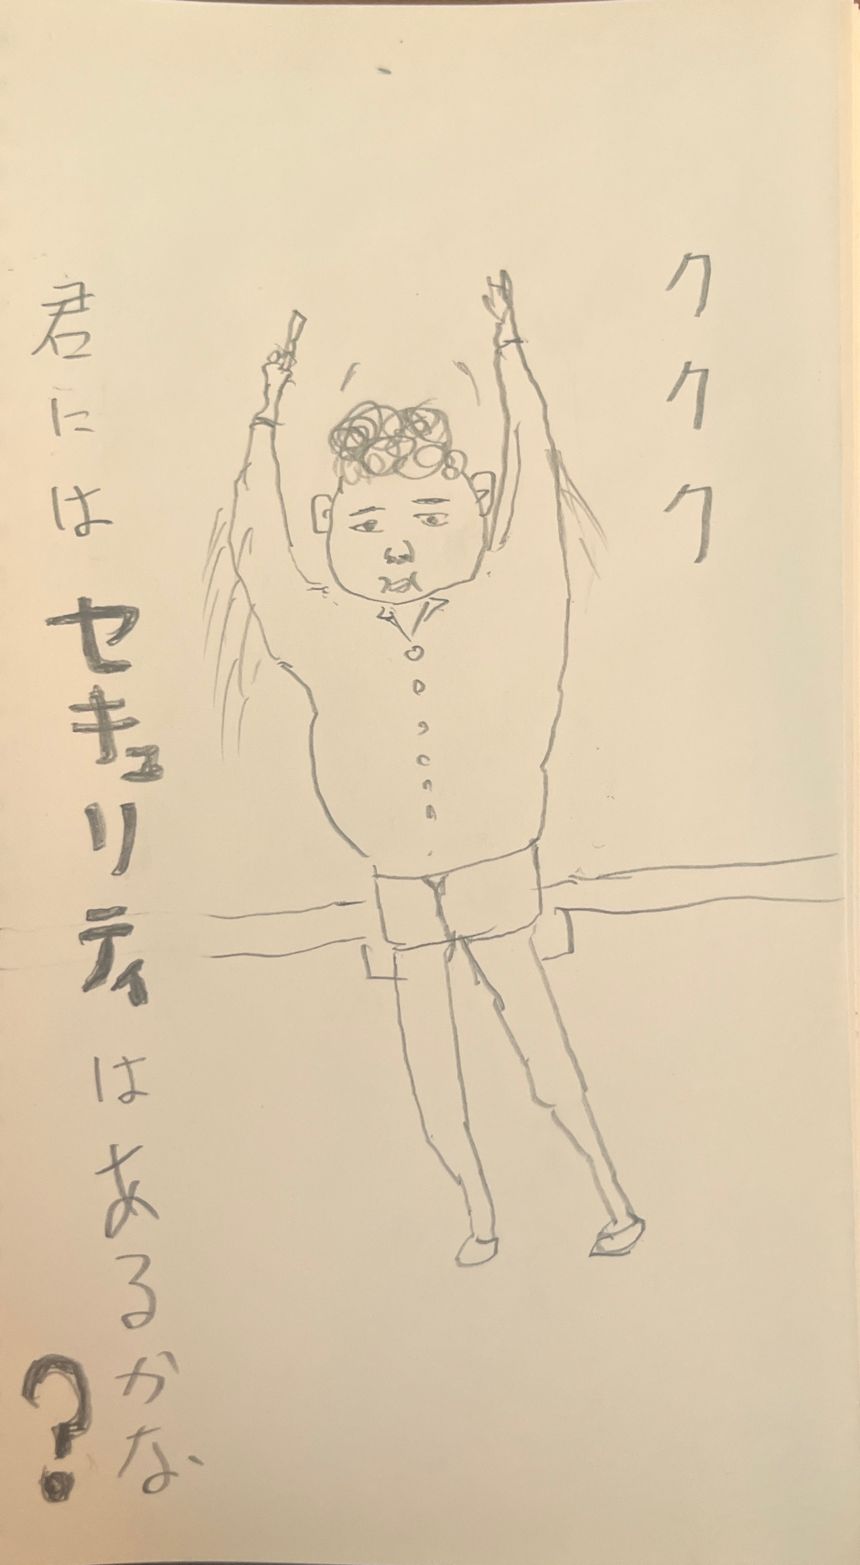 ククク
君にはセキュリティはあるかな？